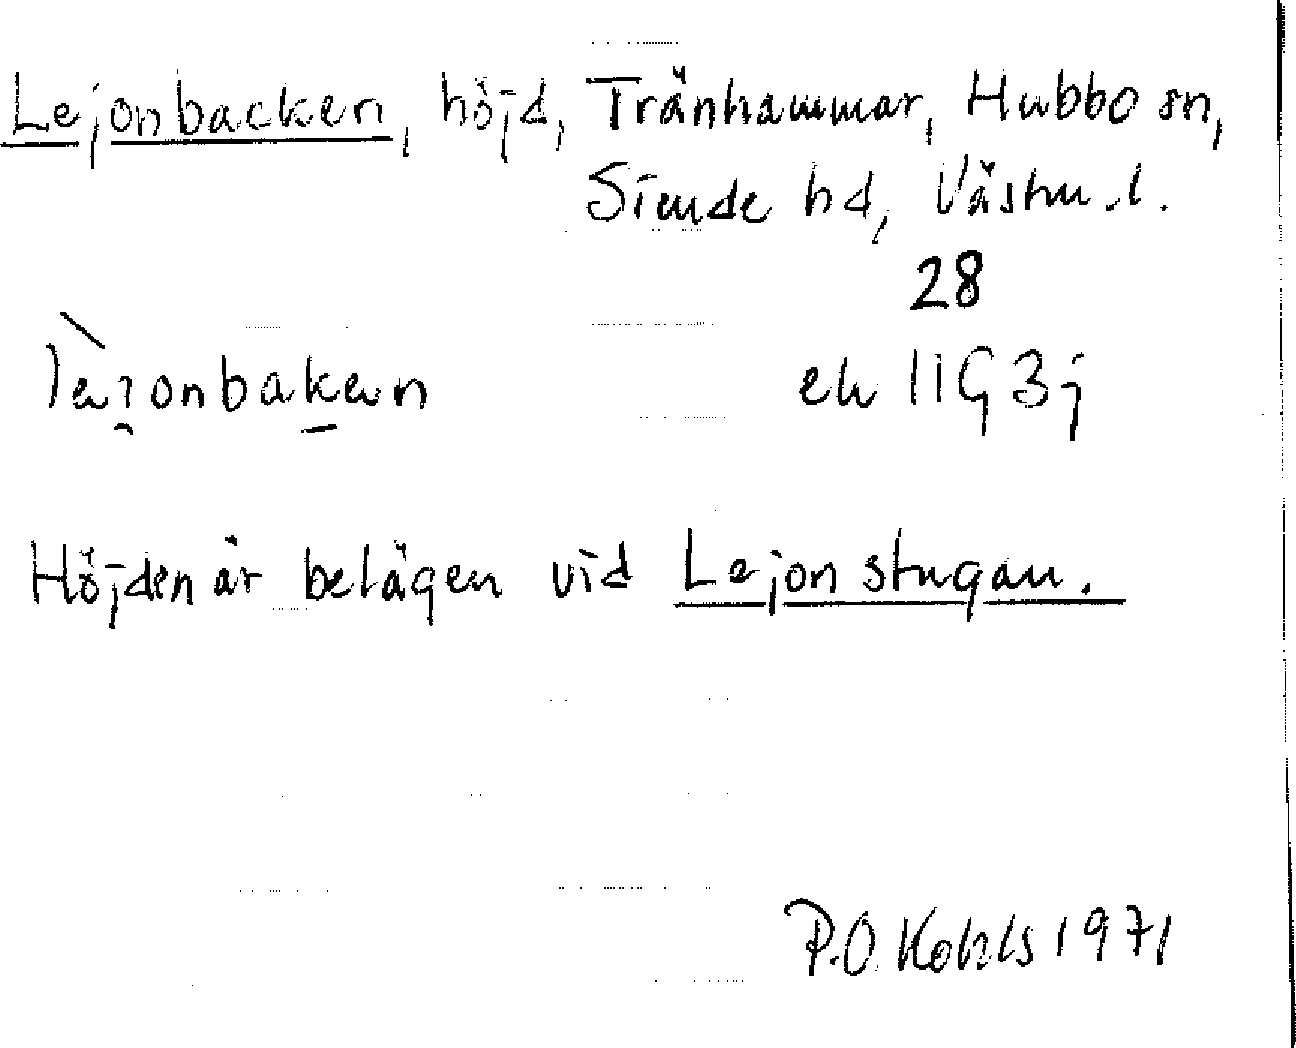 Lejonbacken, höjd, Tränhammar, Hubbo sn,
Siende hd, Västm.l.
28
ek 11G3j
Höjden är belägen vid Lejonstugan.
P.O. Kohls 1971